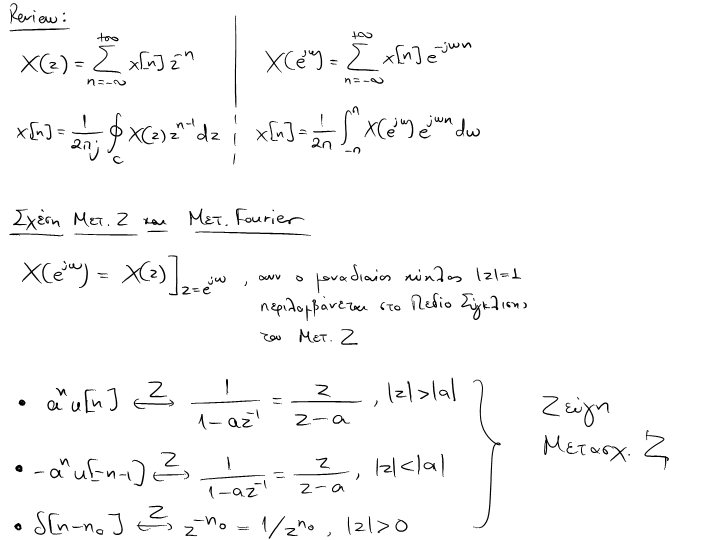 Review:
X(z) = Σ_{n=-∞}^{+∞} x[n] z^{-n} | X(e^{jω}) = Σ_{n=-∞}^{+∞} x[n] e^{-jωn}
x[n] = 1/(2πj) ∮_C X(z) z^{n-1} dz | x[n] = 1/(2π) ∫_{-π}^{π} X(e^{jω}) e^{jωn} dω
Σχέση Μετ. Z και Μετ. Fourier
X(e^{jω}) = X(z)]_{z=e^{jω}} , αν ο μοναδιαίος κύκλος |z|=1
περιλαμβάνεται στο Πεδίο Σύγκλισης
του Μετ. Z
• a^n u[n] ⟷^Z 1/(1-az^{-1}) = z/(z-a) , |z|>|a|
Ζεύγη
Μετασχ. Z
• -a^n u[-n-1] ⟷^Z 1/(1-az^{-1}) = z/(z-a) , |z|<|a|
• δ[n-n_0] ⟷^Z z^{-n_0} = 1/z^{n_0} , |z|>0